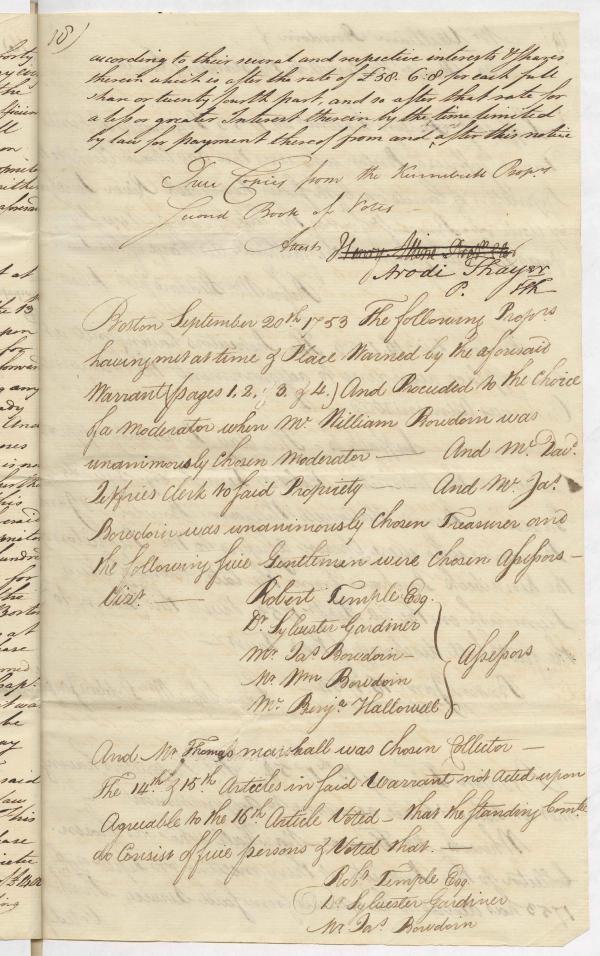 18)
according to their several and respective interests & shares
therein which is after the rate of £58. 6: 8 for each full
share or twenty fourth part, and so after that rate for
a less or greater Interest therein by the time limited
by law for payment thereof from and after this notice
True Copies from the Kennebeck Propr.s
Second Book of Votes
Attest Henry Alline
Arodi Thayer
P. Clk
Boston September 20th 1753 The following Propors
having met at time & Place Warned by the aforesaid
Warrant (pages 1, 2, 3, & 4.) And Proceeded to the Choice
of a Moderator when Mr. William Bowdoin was
unanimously Chosen Moderator — And Mr. Davd.
Jeffries Clerk to said Propriety — And Mr. Jas.
Bowdoin was unanimously Chosen Treasurer and
the following five Gentlemen were Chosen Assessors —
Vizt. — Robert Temple Esq.
Dr. Sylvester Gardiner
Mr. Jas Bowdoin —
Mr. Wm Bowdoin
Mr. Benja Hallowell
Assessors
And Mr. Thomas Marshall was Chosen Collector —
The 14th & 15th Articles in said Warrant not Acted upon
Agreeable to the 16th Article Voted — that the standing Comtte
do Consist of five persons & Voted that. —
Robt. Temple Esq
Dr. Sylvester Gardiner
Mr. Jas. Bowdoin